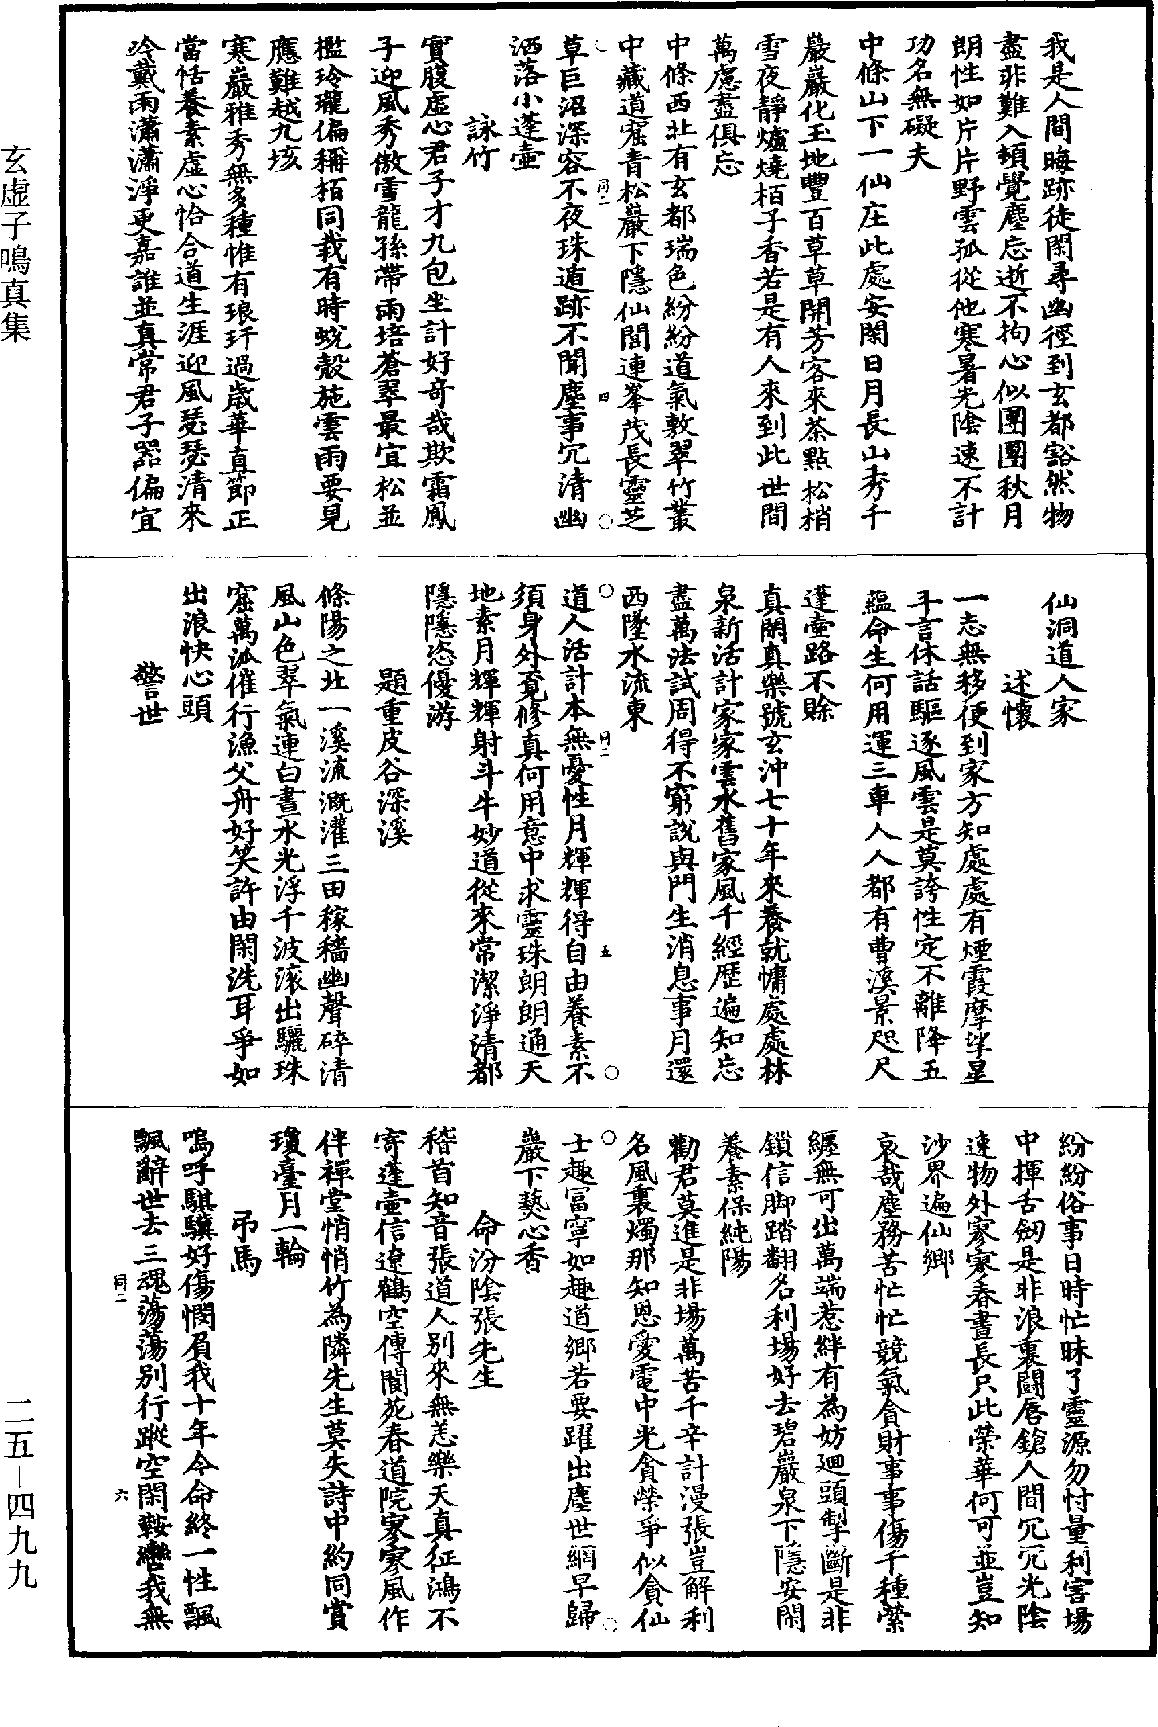 我是人間晦跡徒閑尋幽徑到玄都豁然物
盡非難入頓覺塵忘逝不拘心似團團秋月
朗性如片片野雲孤從他寒暑光陰速不計
功名無礙夫
中條山下一仙庄此處安閑日月長山秀千
巖巖化玉地豐百草草開芳客來茶點松梢
雪夜靜爐燒栢子香若是有人來到此世間
萬慮盡俱忘
中條西北有玄都瑞色紛紛道氣敷翠竹叢
中藏道窟青松巖下隱仙閭連峯茂長靈芝
草巨沼深容不夜珠遁跡不聞塵事冗清幽
洒落小蓬壺
詠竹
實腹虛心君子才九包坐計好奇哉欺霜鳳
子迎風秀傲雪龍孫帶雨培蒼翠最宜松並
檻玲瓏偏稱栢同栽有時蛻殼施雲雨要見
應難越九垓
寒巖雅秀無多種惟有琅玕過歲華真節正
當恬養素虛心恰合道生涯迎風瑟瑟清來
冷戴雨瀟瀟淨更嘉誰並真常君子器偏宜
仙洞道人家
述懷
一志無移便到家方知處處有煙霞摩挲星
斗言休話驅逐風雲是莫誇性定不離降五
蘊命生何用運三車人人都有曹溪景咫尺
蓬壺路不賒
真閑真樂號玄沖七十年來養就慵處處林
泉新活計家家雲水舊家風千經歷遍知忘
盡萬法試周得不窮說與門生消息事月還
西墜水流東
道人活計本無憂性月輝輝得自由養素不
須身外覓修真何用意中求靈珠朗朗通天
地素月輝輝射斗牛妙道從來常潔淨清都
隱隱恣優游
題重皮谷深溪
條陽之北一溪流溉灌三田稼穡幽聲碎清
風山色翠氣連白晝水光浮千波滾出驪珠
窟萬派催行漁父舟好笑許由閑洗耳爭如
出浪快心頭
警世
紛紛俗事日時忙昧了靈源勿忖量利害場
中揮舌劒是非浪裏鬬唇鎗人間冗冗光陰
速物外寥寥春晝長只此榮華何可並豈知
沙界遍仙鄉
哀哉塵務苦忙忙競氣貪財事事傷千種縈
纏無可出萬端惹絆有為妨迴頭掣斷是非
鎖信脚踏翻名利場好去碧巖泉下隱安閑
養素保純陽
勸君莫進是非場萬苦千辛計漫張豈解利
名風裏燭那知恩愛電中光貪榮爭似貪仙
士趣富寧如趣道鄉若要躍出塵世網早歸
巖下爇心香
命汾陰張先生
稽首知音張道人別來無恙樂天真征鴻不
寄蓬壺信遼鶴空傳閬苑春道院寥寥風作
伴禪堂悄悄竹為隣先生莫失詩中約同賞
瓊臺月一輪
弔馬
嗚呼騏驥好傷憫負我十年今命終一性飄
飄辭世去三魂蕩蕩別行蹤空閑鞍轡我無
玄虛子鳴真集
二五－四九九